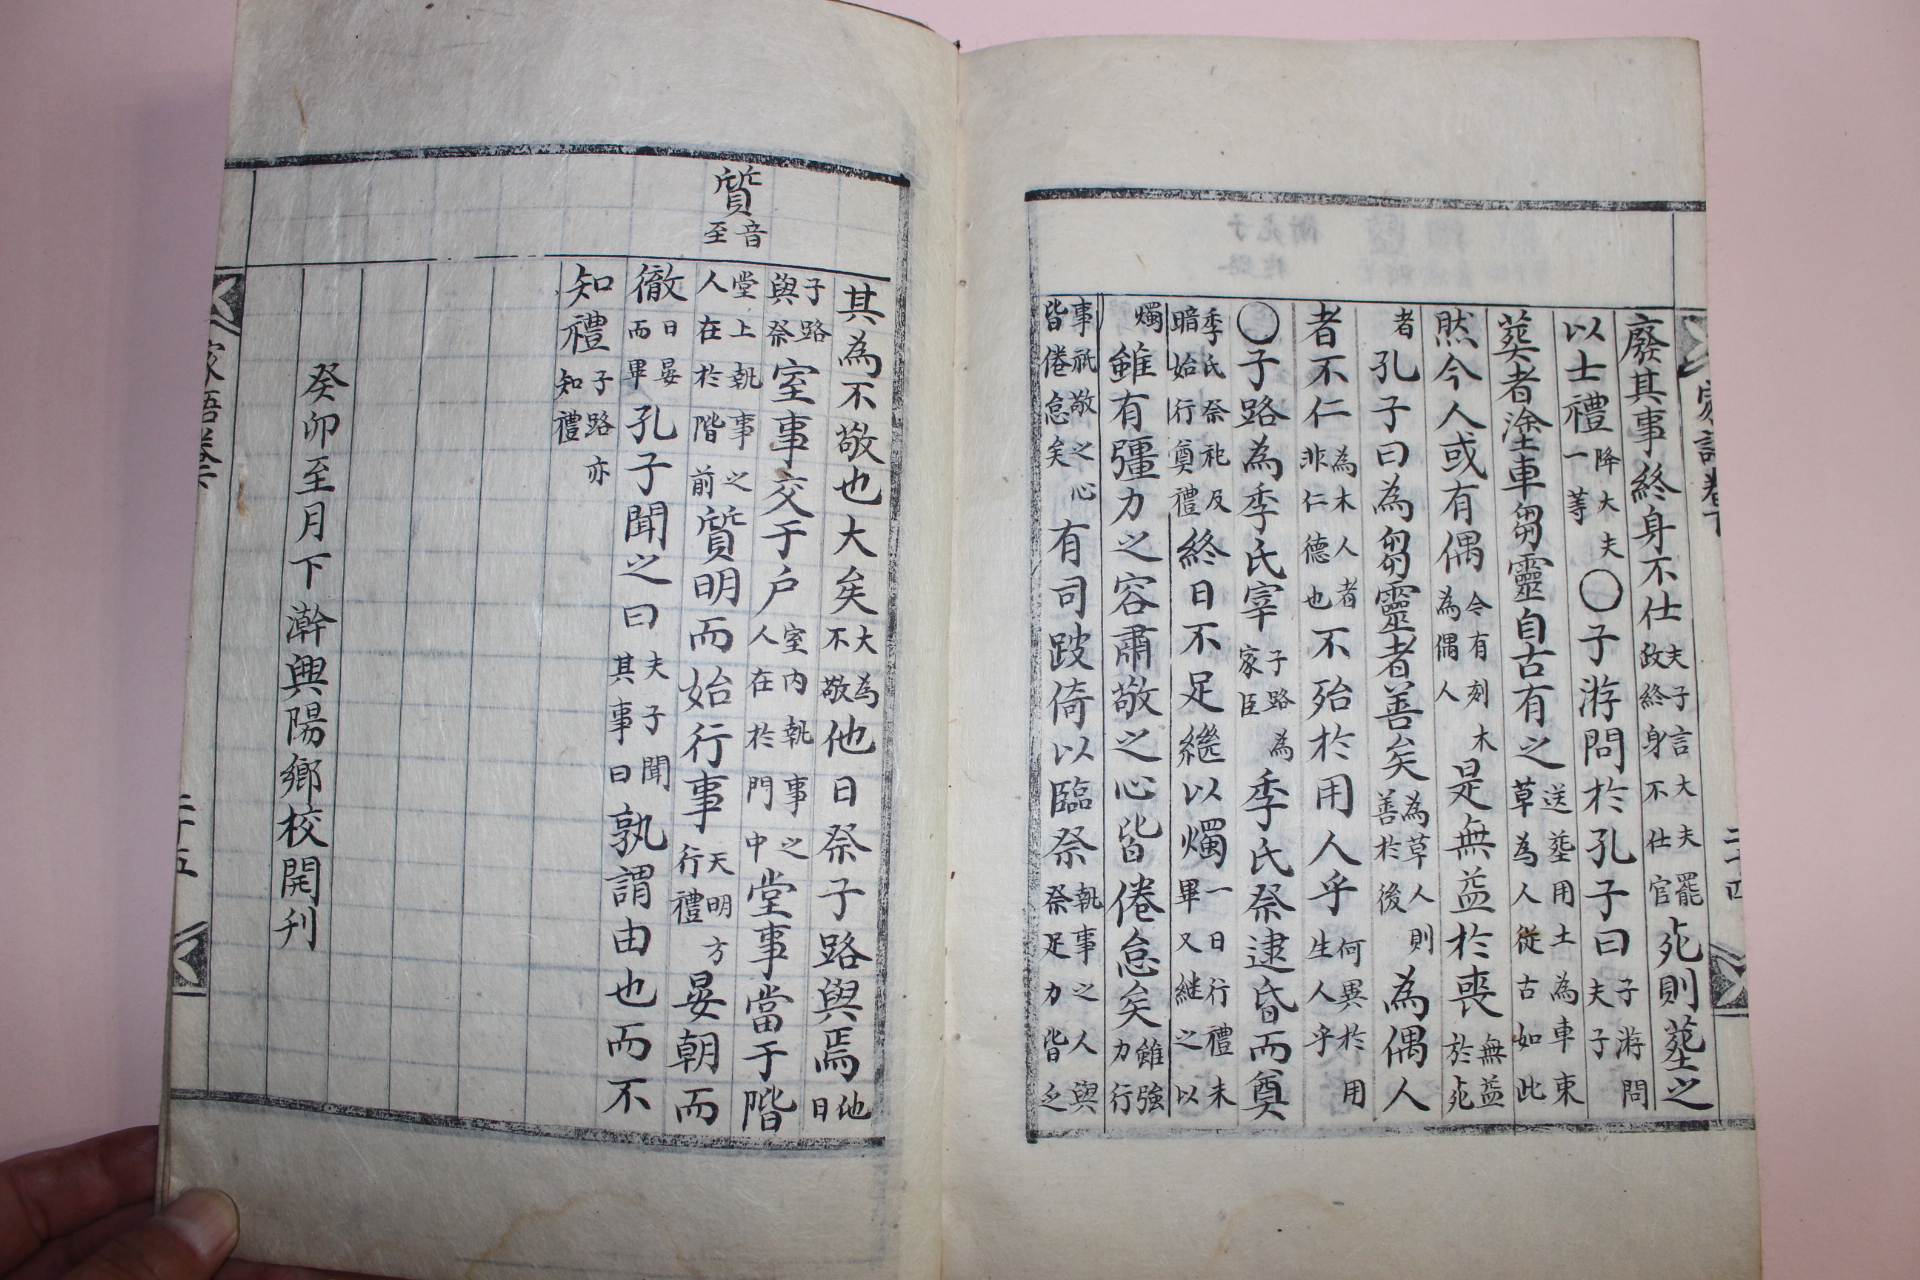 廢其事終身不仕夫子言大夫罷政終身不仕官死則葬之
以士禮降大夫一等〇子游問於孔子曰子游問夫子
葬者塗車芻靈自古有之送葬用土為車束草為人從古如此
然今人或有偶令有刻木為偶人是無益於喪無益於死
者孔子曰為芻靈者善矣為草人則善於後為偶人
者不仁為木人者非仁德也不殆於用人乎何異於用生人乎
〇子路為季氏宰子路為家臣季氏祭逮昏而奠
季氏祭祀及暗始行奠禮終日不足繼以燭一日行禮未畢又継之以
燭雖有彊力之容肅敬之心皆倦怠矣雖強力行
事祇敬之心皆倦怠矣有司跛倚以臨祭執事之人與祭足力皆乏
家語卷下
二十四
質音至
其為不敬也大矣大為不敬他日祭子路與焉他日
子路與祭室事交于户室内執事之人在於門中堂事當于階
堂上執事之人在於階前質明而始行事天明方行禮晏朝而
徹日晏而畢孔子聞之曰夫子聞其事曰孰謂由也而不
知禮子路亦知禮
癸卯至月下澣興陽鄉校開刊
家語卷下
二十五